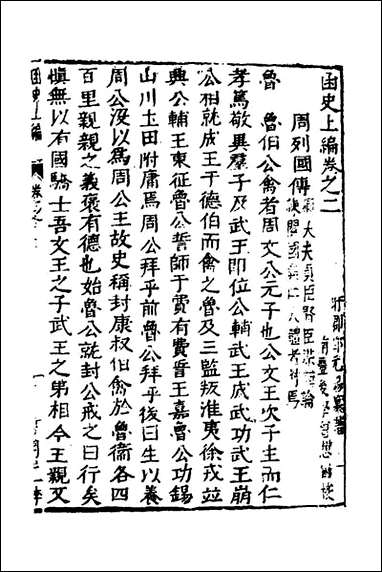 函史上編卷之二
周列國傳
魯 魯伯公禽者周文公元子也公文王次子主而仁
孝篤敬異羣子及武王即位公輔武王成武功武王崩
公相就成王于德伯而禽之魯及三監叛淮夷徐戎並
興公輔王東征魯公誓師于費有費誓王嘉魯公功錫
山川土田附庸焉周公拜乎前魯公拜乎後曰生以養
周公沒以爲周公主故史稱封康叔伯禽於魯衞各四
百里親親之義褒有德也始魯公就封公戒之曰行矣
愼無以有國驕士吾文王之子武王之弟相今王親文
函史上編